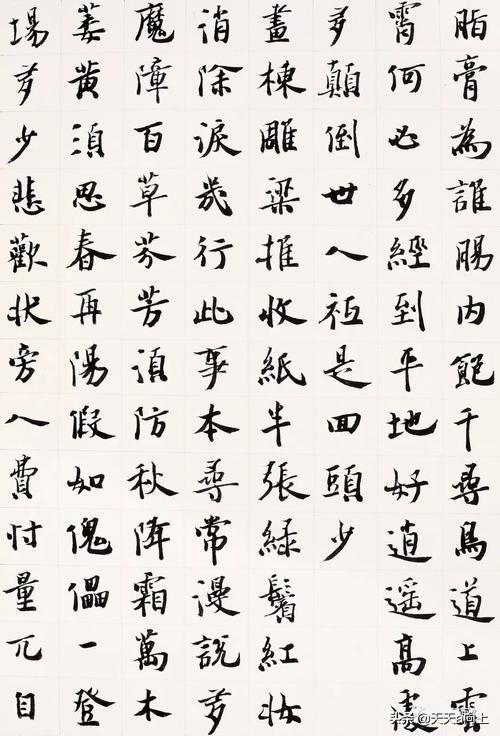 脂膏為誰腸内飽千尋鳥道上雲
霄何必多經到平地好逍遥高處
多顛倒世人祗是回頭少
畫棟雕梁推收紙半張緑鬢紅妝
消除淚幾行此事本尋常漫說多
魔障百草芬芳須防秋陣霜萬木
萎黄須思春再陽假如傀儡一登
場多少悲歡狀旁人費忖量兀自
头条@天天a向上